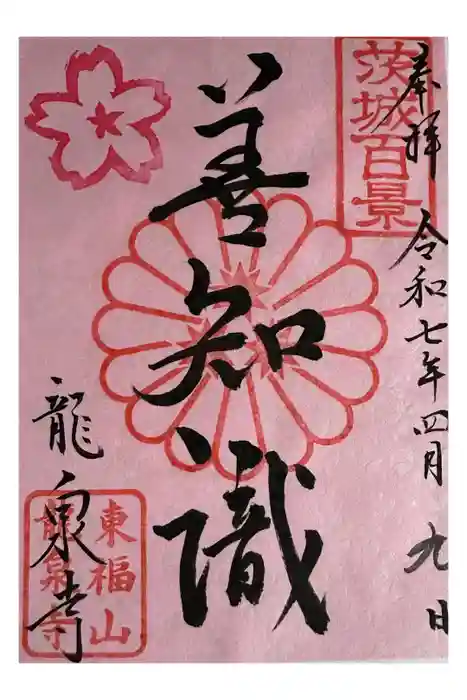 奉拝 令和七年四月九日
茨城百景
善知識
龍泉寺
東福山
龍泉寺